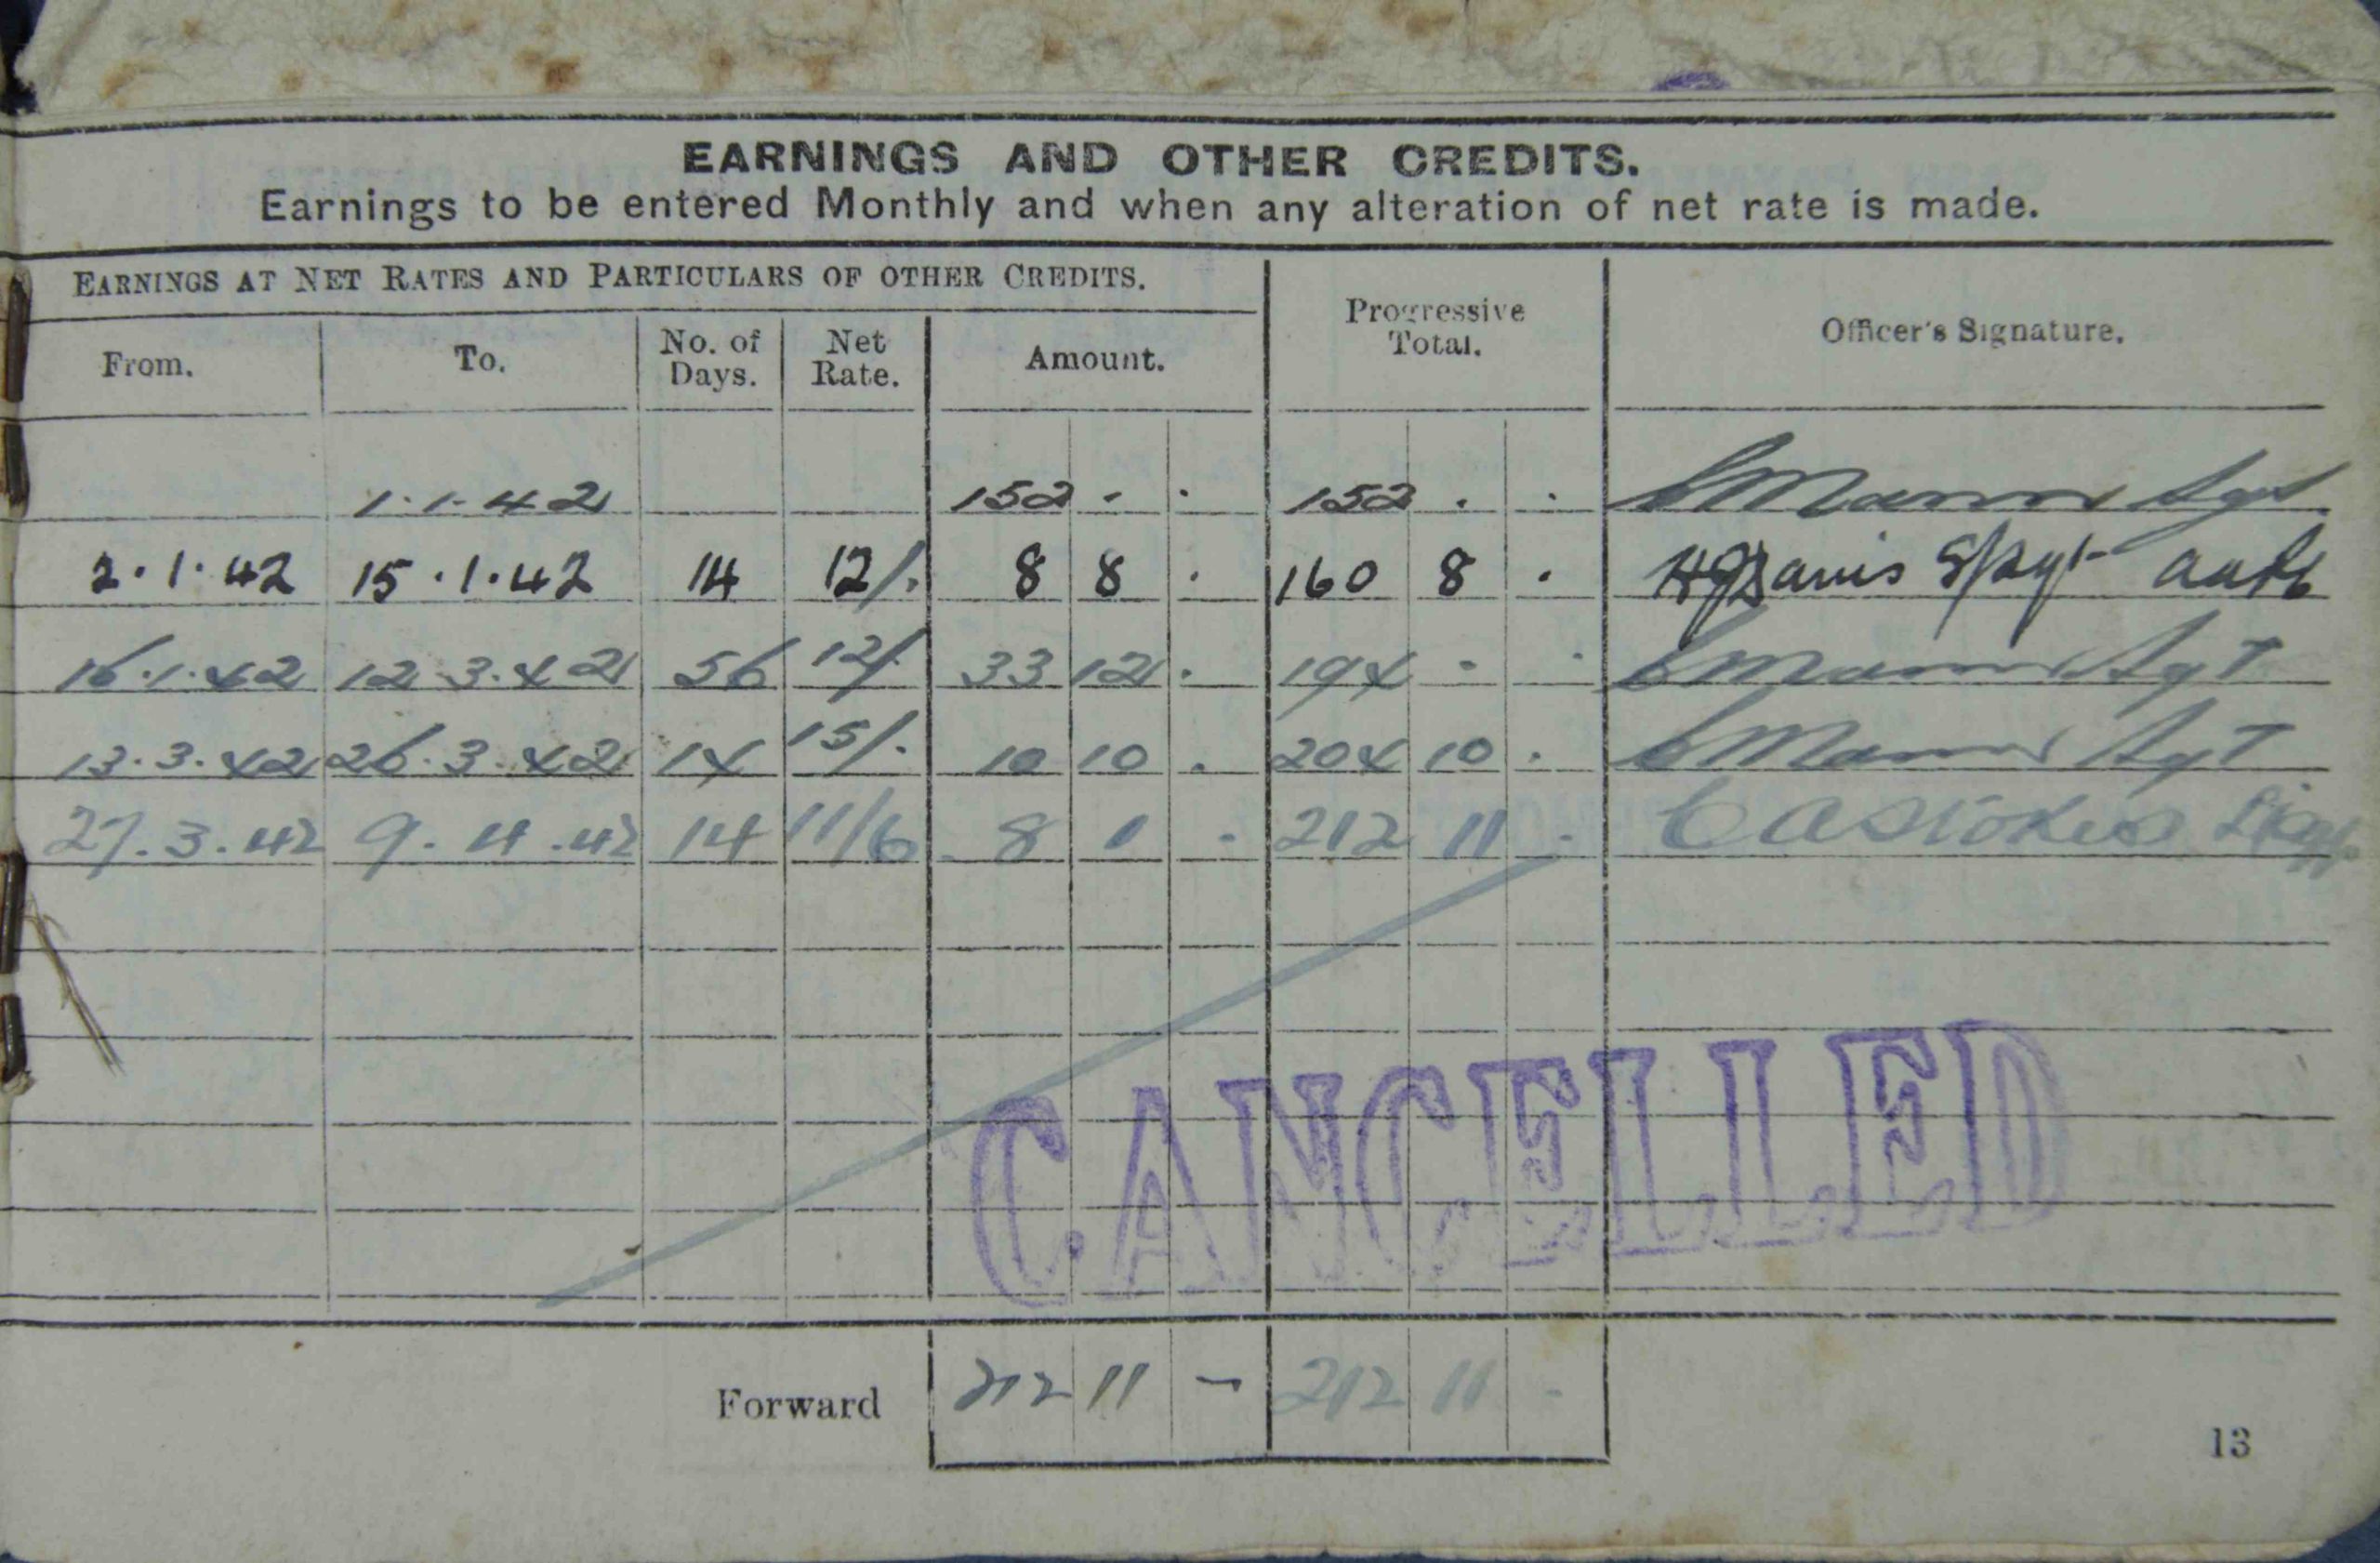 EARNINGS AND OTHER CREDITS.
Earnings to be entered Monthly and when any alteration of net rate is made.
EARNINGS AT NET RATES AND PARTICULARS OF OTHER CREDITS. Progressive Total. Officer's Signature.
From. To. No. of Days. Net Rate. Amount.
1.1.42 152 . . 152 . . Mann Sgt.
2.1.42 15.1.42 14 12/. 8 8 . 160 8 . HG Davis S/Sgt
16.1.42 12.3.42 56 12/. 33 12 . 194 . . Mann Sgt
13.3.42 26.3.42 14 15/. 10 10 . 204 10 . Mann Sgt
27.3.42 9.4.42 14 11/6. 8 1 - 212 11 - C A Stokes
CANCELLED
Forward 212 11 - 212 11 -
13